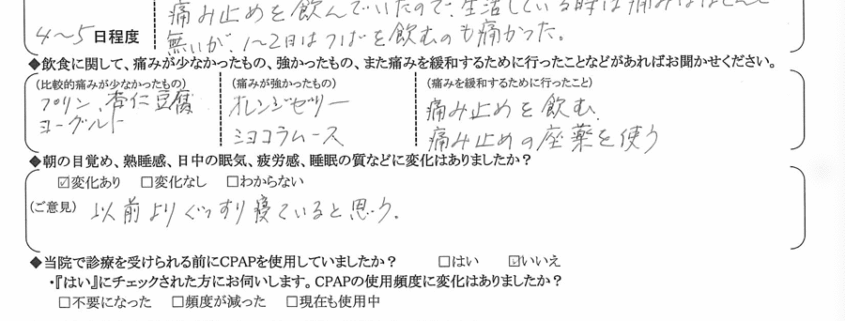 痛み止めを飲んでいたので、生活している時は痛みはほとんど
4～5日程度
無いが、1～2日はつばを飲むのも痛かった。
◆飲食に関して、痛みが少なかったもの、強かったもの、また痛みを緩和するために行ったことなどがあればお聞かせください。
(比較的痛みが少なかったもの) (痛みが強かったもの) (痛みを緩和するために行ったこと)
プリン、杏仁豆腐 オレンジゼリー 痛み止めを飲む、
ヨーグルト ショコラムース 痛み止めの座薬を使う
◆朝の目覚め、熟睡感、日中の眠気、疲労感、睡眠の質などに変化はありましたか？
☑変化あり □変化なし □わからない
(ご意見) 以前よりぐっすり寝ていると思う。
◆当院で診療を受けられる前にCPAPを使用していましたか？ □はい ☑いいえ
・『はい』にチェックされた方にお伺いします。CPAPの使用頻度に変化はありましたか？
□不要になった □頻度が減った □現在も使用中